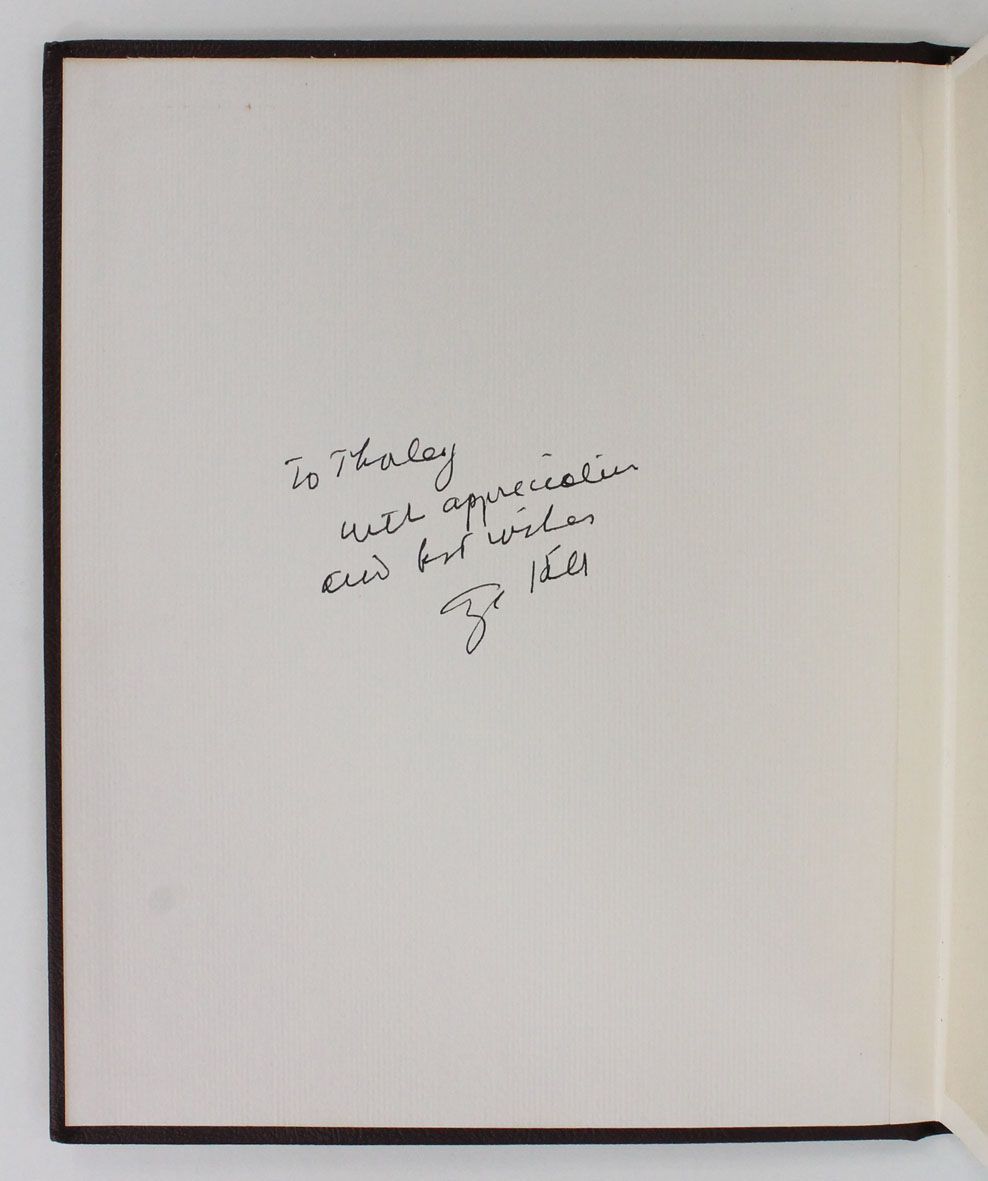 To Thorley
with appreciation
and best wishes